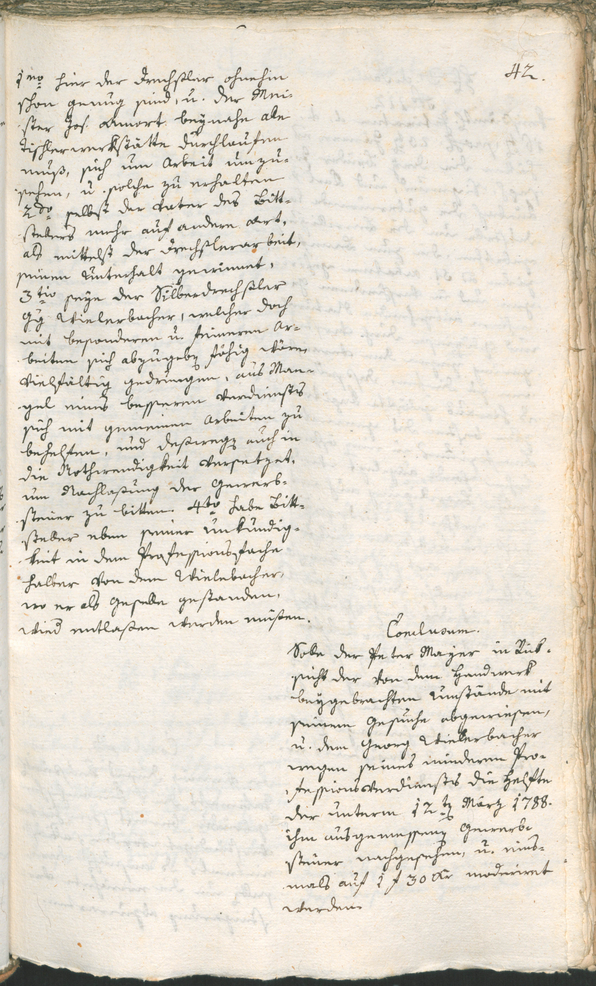 42.
1mo hier der Drechsler ohnehin
schon genug sind, u. der Mei-
ster Jos. Amort beynahe alle
Tischlerwerkstätte durchlaufen
muß, sich um Arbeit umzu-
sehen, u. solche zu erhalten
2do selbst der Vater des Bitt-
stellers mehr auf andere Art,
als mittelst der Drechslerarbeit,
seinen Unterhalt gewinnet,
3tio seye der Silberdrechsler
Gg Wielerbacher, welcher doch
mit besonderen u. feineren Ar-
beiten sich abzugeben fähig wäre,
vielfältig gedrungen, aus Man-
gel eines besseren Verdienstes
sich mit gemeinen Arbeiten zu
behelfen, und deßwegen auch in
die Nothwendigkeit versetzet,
um Nachlaßung der Gewerb-
steuer zu bitten. 4to habe Bitt-
steller eben seiner Unkündig-
keit in dem Professionsfache
halber von dem Wielerbacher,
wo er als Geselle gestanden,
wied entlassen werden müssen.
Conclusum.
Solle der Peter Mayer in Rük-
sicht der von dem Handwerk
beygebrachten Umstände mit
seinem Gesuche abgewiesen,
u. dem Georg Wielerbacher
wegen seines minderen Pro-
fessionsverdienstes die Helfte
der unterm 12ten März 1788.
ihm ausgemessenen Gewerb-
steuer nachgesehen, u.
mals auf 1 f 30 Xr moderiret
werden.